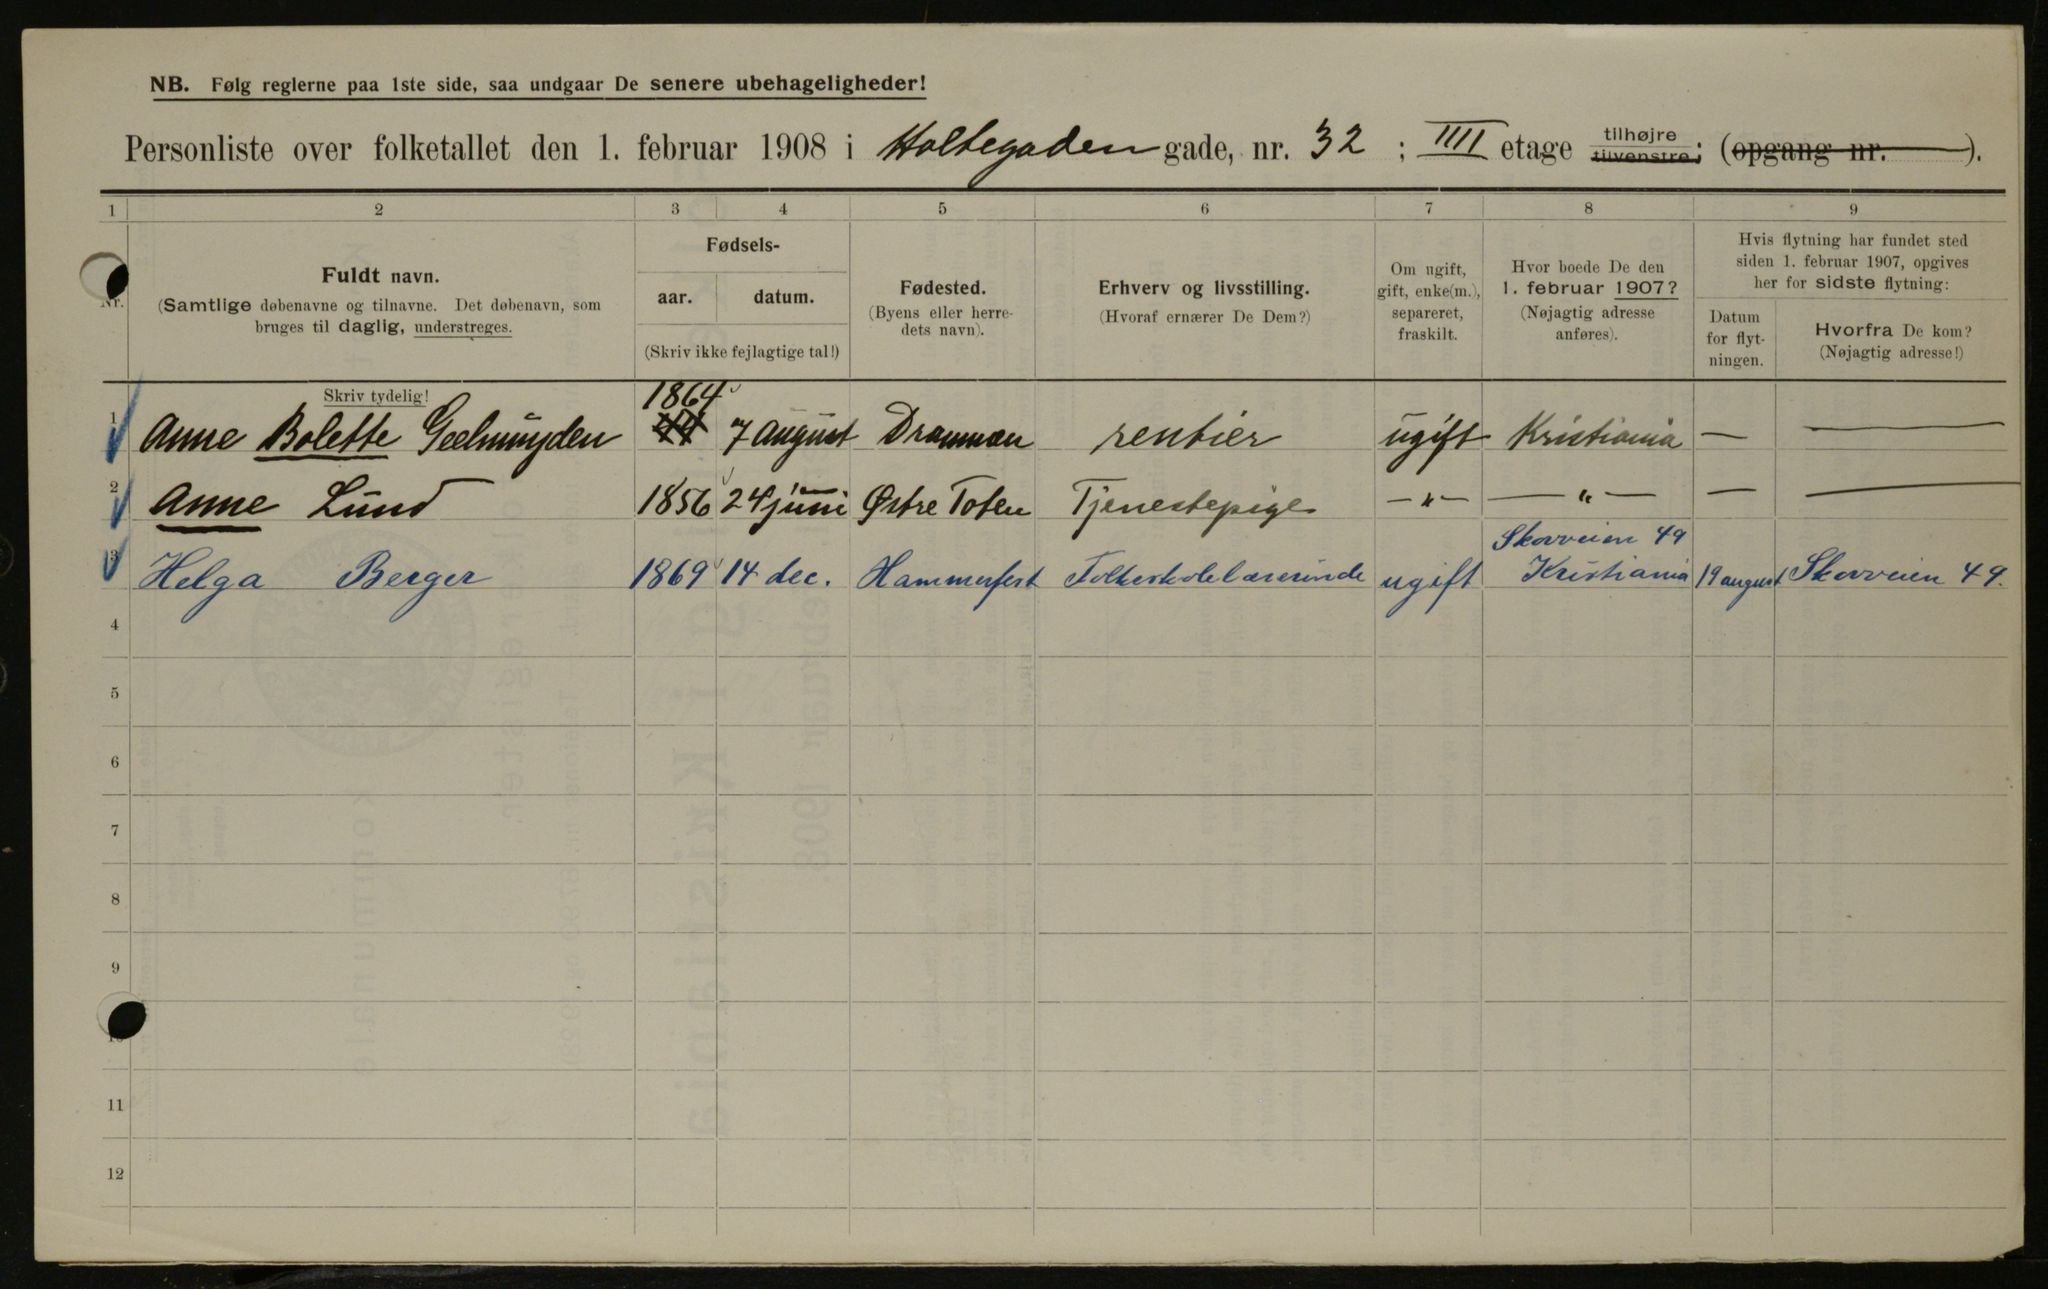 NB. Følg reglerne paa 1ste side, saa undgaar De senere ubehageligheder!
Personliste over folketallet den 1. februar 1908 i Holtegaden gade, nr. 32 ; IIII etage tilhøjre tilvenstre; (opgang nr. ).
1 2 3 4 5 6 7 8 9
Nr.
Fuldt navn.
(Samtlige døbenavne og tilnavne. Det døbenavn, som
bruges til daglig, understreges.
Skriv tydelig!
Fødsels-
aar. datum.
(Skriv ikke fejlagtige tal!)
Fødested.
(Byens eller herre-
dets navn).
Erhverv og livsstilling.
(Hvoraf ernærer De Dem?)
Om ugift,
gift, enke(m.),
separeret,
fraskilt.
Hvor boede De den
1. februar 1907?
(Nøjagtig adresse
anføres).
Hvis flytning har fundet sted
siden 1. februar 1907, opgives
her for sidste flytning:
Datum
for flyt-
ningen.
Hvorfra De kom?
(Nøjagtig adresse!)
1864
1 Anne Bolette Geelmuyden 7 august Drammen rentier ugift Kristiania — —
2 Anne Lund 1856 24 juni Østre Toten Tjenestepige —"— —"— — —
Skovveien 49
3 Helga Berger 1869 14 dec. Hammerfest Folkeskolelærerinde ugift Kristiania 19 august Skovveien 49.
4
5
6
7
8
9
10
11
12